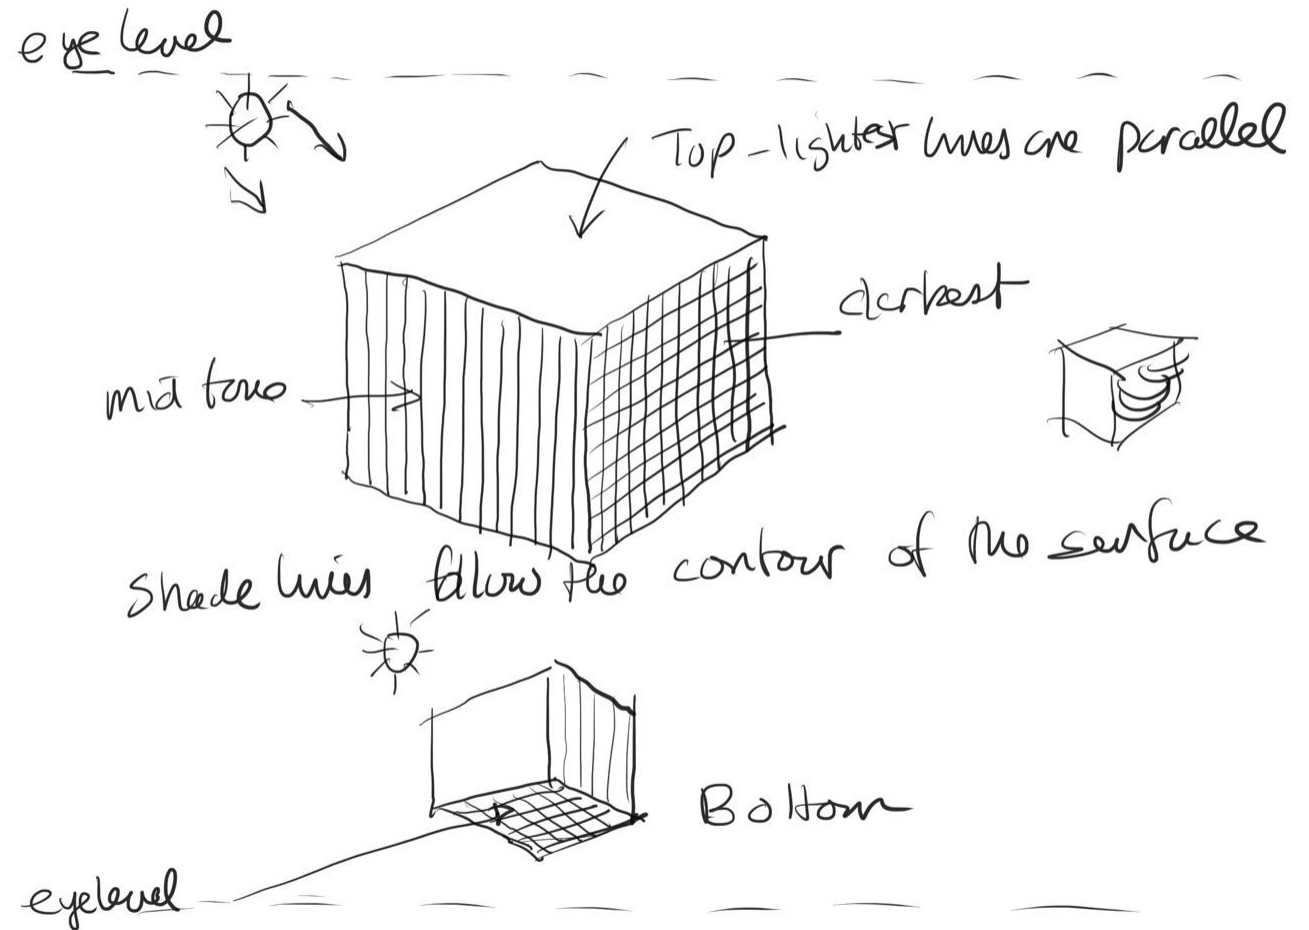 eye level
Top - lightest lines are parallel
darkest
mid tone
Shade lines follow the contour of the surface
Bottom
eyelevel